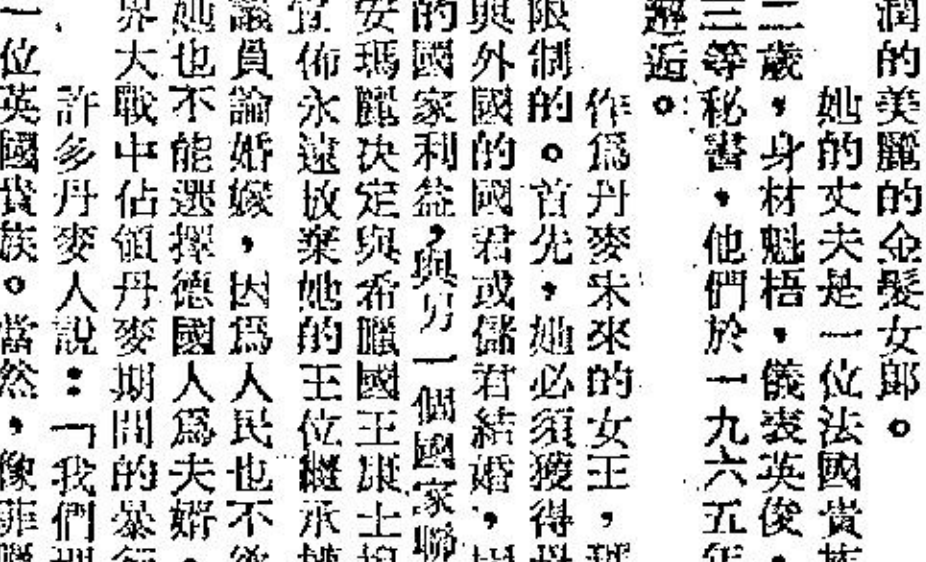 潤的美麗的金髮女郎。
她的丈夫是一位法國貴族
二歲，身材魁梧，儀表英俊，
三等秘書，他們於一九六五年
邂逅。
作爲丹麥未來的女王，
限制的。首先，她必須獲得
與外國的國君或儲君結婚，
的國家利益，與另一個國家聯
安瑪麗決定與希臘國王康士坦
宣佈永遠放棄她的王位繼承
議員論婚嫁，因爲人民也不
她也不能選擇德國人爲夫婿，
界大戰中佔領丹麥期間的暴行
許多丹麥人說：「我們
一位英國貴族。當然，像菲